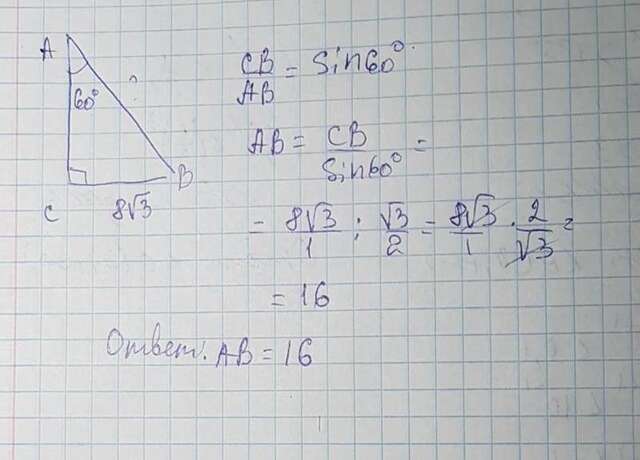 A
60°
?
B
C
8√3
CB/AB = Sin60°.
AB = CB/Sin60° =
= 8√3/1 : √3/2 = 8√3/1 · 2/√3 =
= 16
Ответ: AB = 16